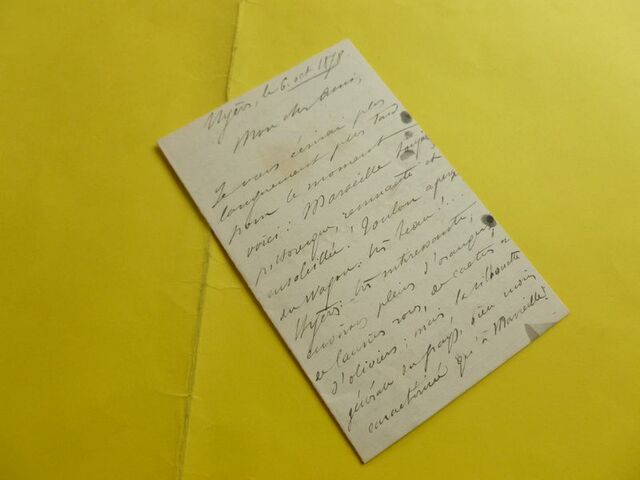 Hyères, le 6. oct 1878
Mon cher Ami,
Je vous écrirai plus
longuement plus tard
pour le moment
voici: Marseille
pittoresque, remuante et
ensoleillée! Toulon aperçu
du wagon: très beau!...
Hyères: très intéressante,
environs pleins d'orangers,
de lauriers roses, de cactus &
d'oliviers; mais, la silhouette
générale du pays, bien moins
caractérisée qu'à Marseille!